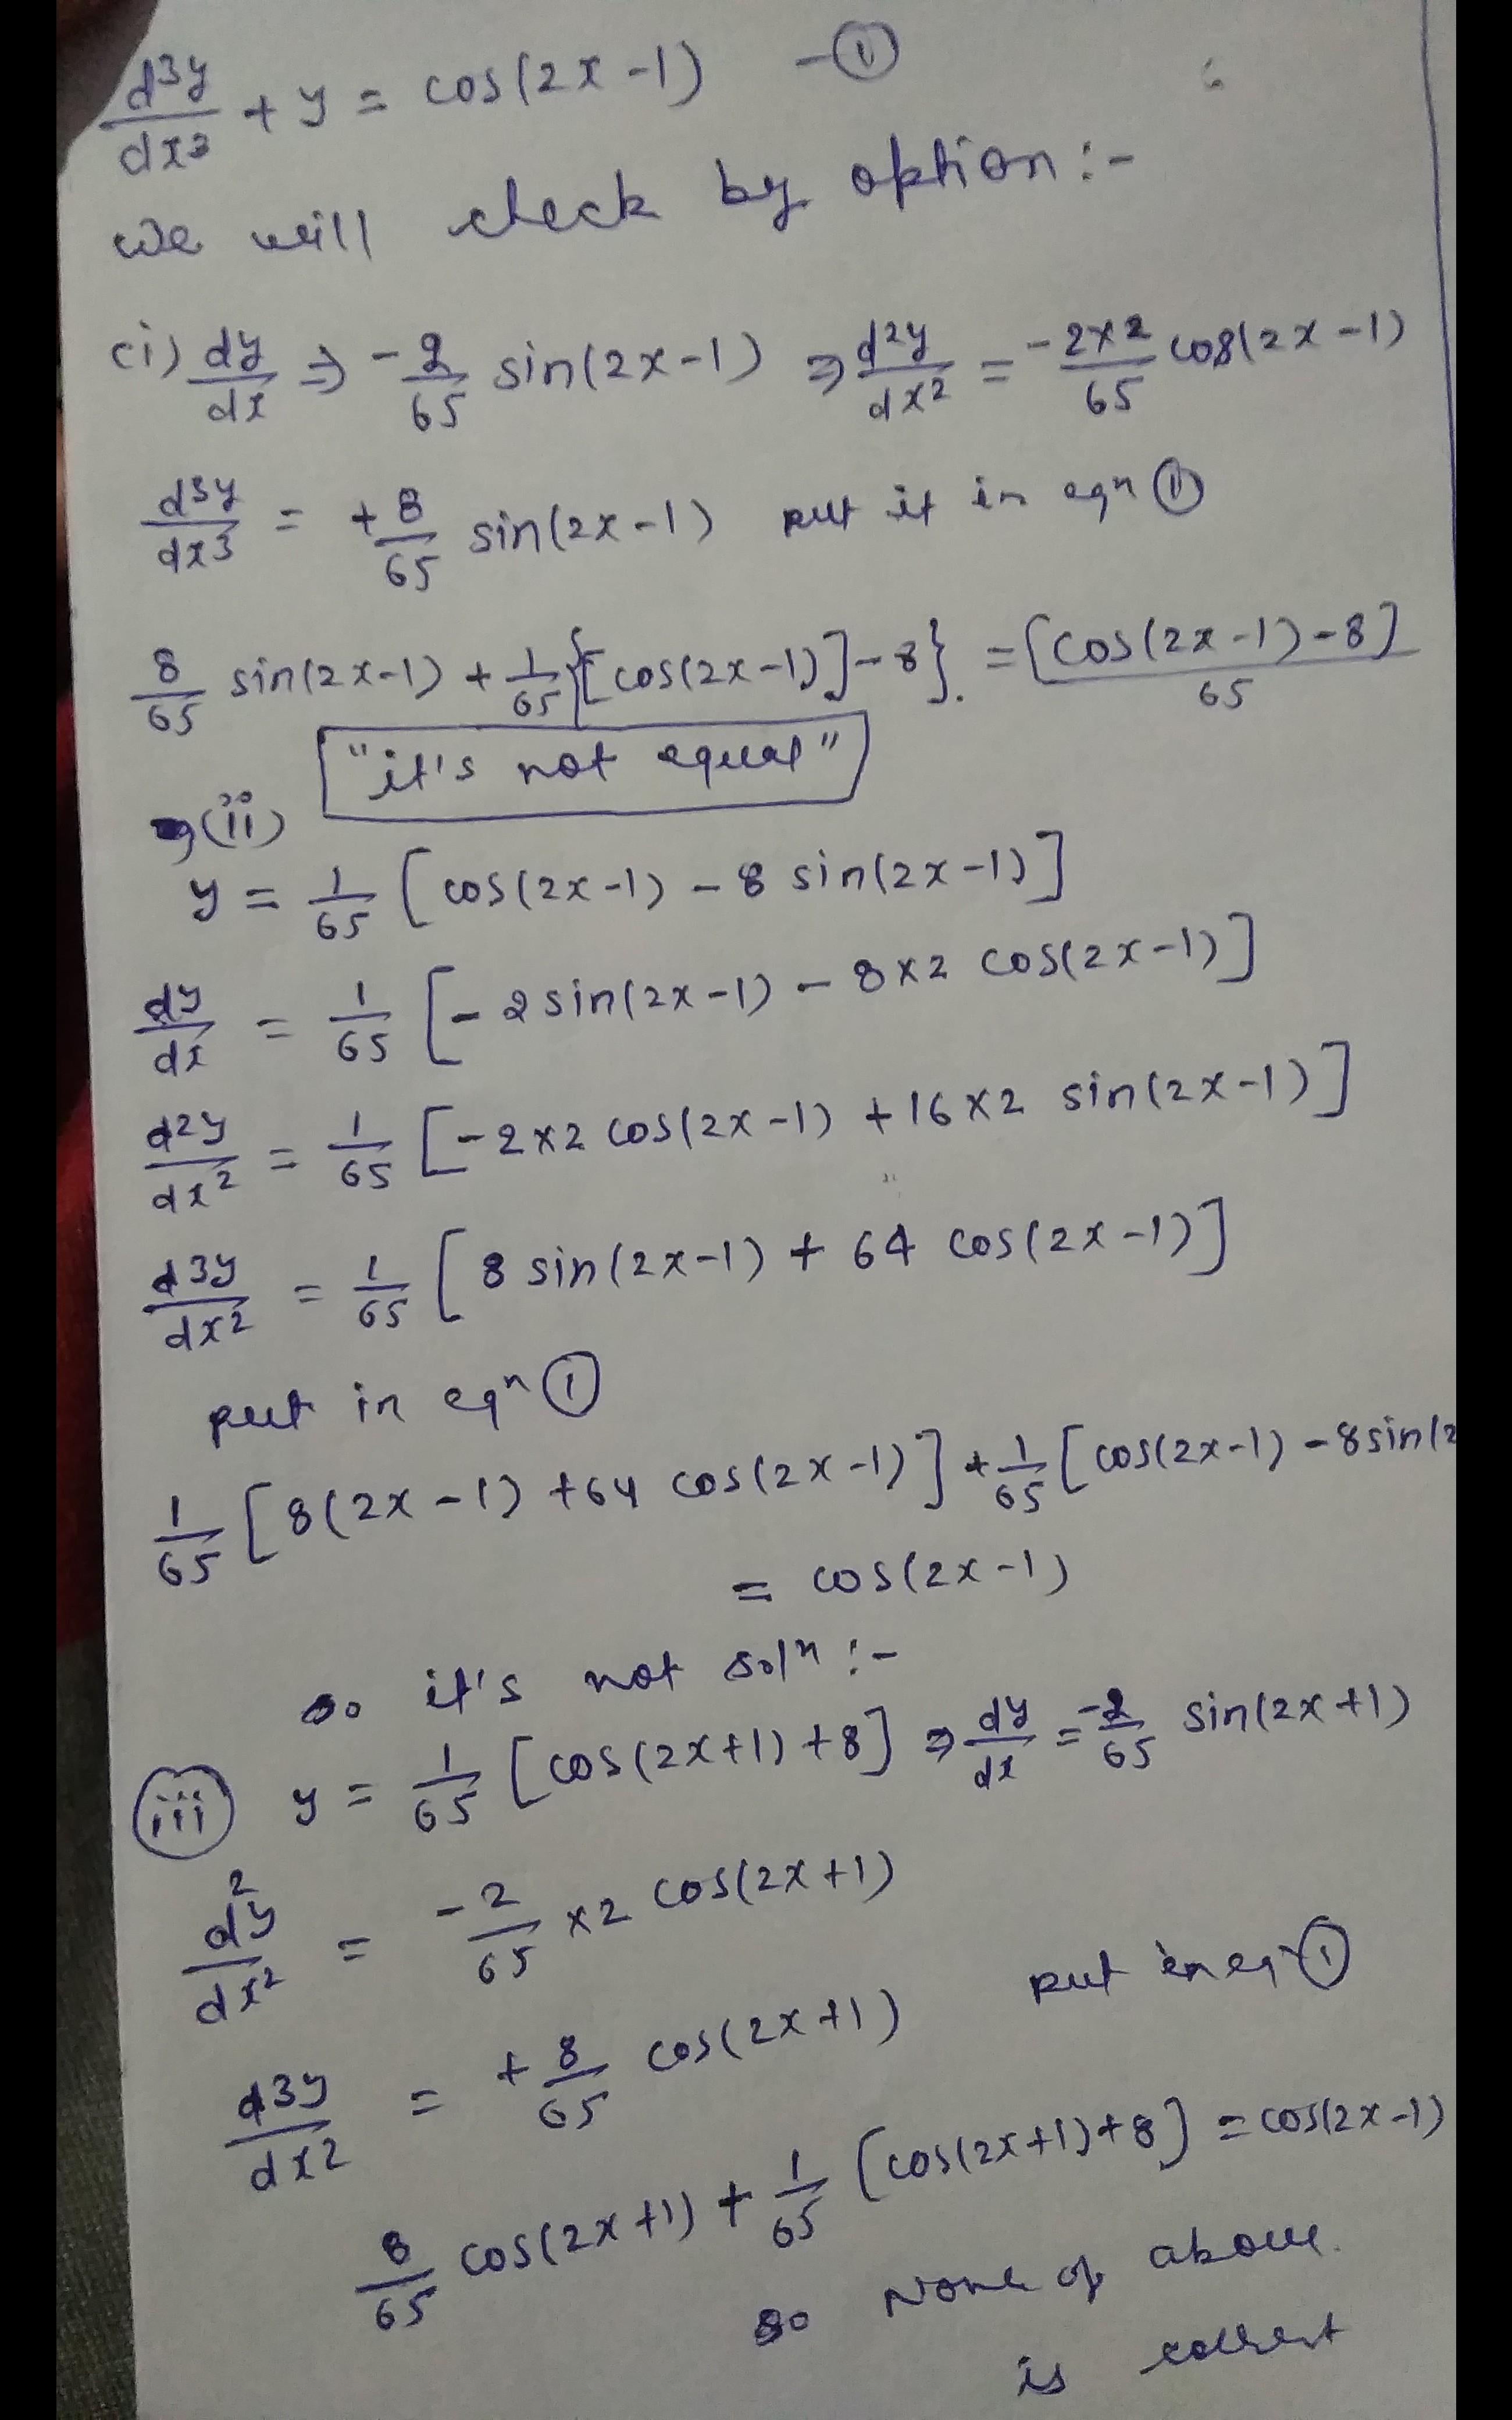 d3y/dx3 + y = cos(2x-1) -①
we will check by option:-
(i) dy/dx ⇒ -2/65 sin(2x-1) ⇒ d2y/dx2 = -2×2/65 cos(2x-1)
d3y/dx3 = +8/65 sin(2x-1) put it in eqn ①
8/65 sin(2x-1) + 1/65{[cos(2x-1)]-8}. = [cos(2x-1)-8]/65
"it's not equal"
(ii)
y = 1/65 [cos(2x-1) - 8 sin(2x-1)]
dy/dx = 1/65 [-2 sin(2x-1) - 8×2 cos(2x-1)]
d2y/dx2 = 1/65 [-2×2 cos(2x-1) + 16×2 sin(2x-1)]
d3y/dx2 = 1/65 [8 sin(2x-1) + 64 cos(2x-1)]
put in eqn ①
1/65 [8(2x-1) + 64 cos(2x-1)] + 1/65 [cos(2x-1) - 8 sin(2
= cos(2x-1)
so it's not soln:-
(iii) y = 1/65 [cos(2x+1)+8] ⇒ dy/dx = -2/65 sin(2x+1)
d2y/dx2 = -2/65 ×2 cos(2x+1)
d3y/dx2 = +8/65 cos(2x+1) put in eq ①
8/65 cos(2x+1) + 1/65 [cos(2x+1)+8] = cos(2x-1)
so None of above.
is correct